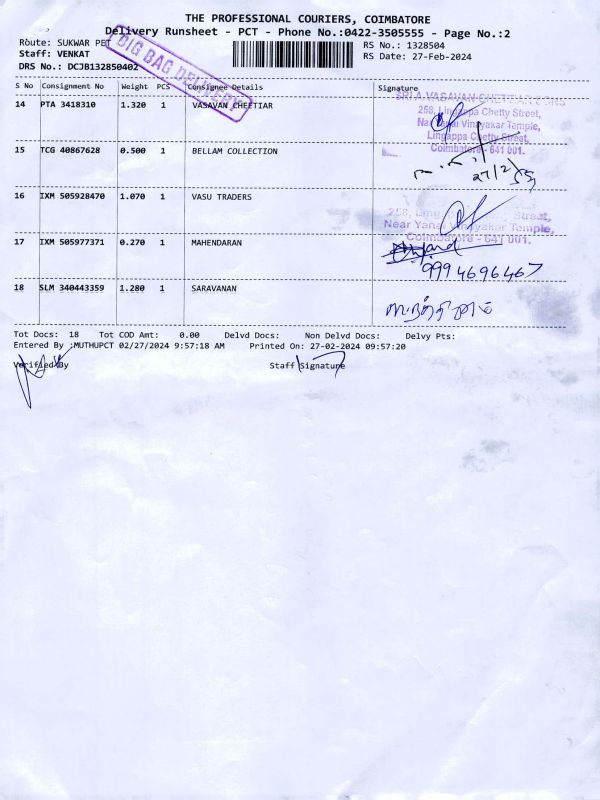 THE PROFESSIONAL COURIERS, COIMBATORE
Delivery Runsheet - PCT - Phone No.:0422-3505555 - Page No.:2
Route: SUKWAR PET
RS No.: 1328504
Staff: VENKAT
RS Date: 27-Feb-2024
DRS No.: DCJB132850402
BIG BAG DELIVERY
S No Consignment No Weight PCS Consignee Details Signature
14 PTA 3418310 1.320 1 VASAVAN CHETTIAR
SRI A.VASAVAN CHETTIAR SONS
258, Lingappa Chetty Street,
Near Yanai Vinayakar Temple,
Lingappa Chetty Street,
Coimbatore - 641 001.
15 TCG 40867628 0.500 1 BELLAM COLLECTION
27/2
16 IXM 505928470 1.070 1 VASU TRADERS
258, Street,
Near Yanai Vinayakar Temple,
Coimbatore - 641 001.
17 IXM 505977371 0.270 1 MAHENDARAN
9994696467
18 SLM 340443359 1.280 1 SARAVANAN
Tot Docs: 18 Tot COD Amt: 0.00 Delvd Docs: Non Delvd Docs: Delvy Pts:
Entered By :MUTHUPCT 02/27/2024 9:57:18 AM Printed On: 27-02-2024 09:57:20
Verified By Staff Signature